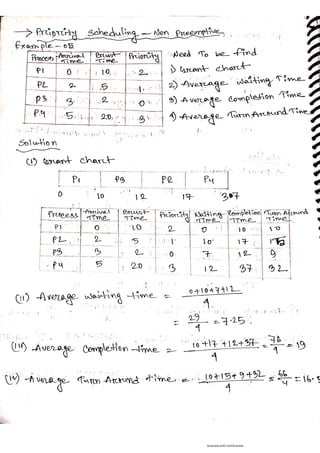 → Priority Scheduling – Non Preemptive
Example – 05
Process Arrival Time Burst Time Priority
P1 0 10 2
P2 2 5 1
P3 3 2 0
P4 5 20 3
Need To be find
1) Grant chart
2) Average Waiting Time
3) Average Completion Time
4) Average Turn Around Time
Solution
(i) Grant chart
P1 P3 P2 P4
0 10 12 17 37
Process Arrival Time Burst Time Priority Waiting Time Completion Time Turn Around Time
P1 0 10 2 0 10 10
P2 2 5 1 10 17 15
P3 3 2 0 7 12 9
P4 5 20 3 12 37 32
(ii) Average waiting time = 0+10+7+12 / 4
= 29 / 4 = 7.25
(iii) Average Completion time = 10+17+12+37 / 4 = 76 / 4 = 19
(iv) Average Turn Around time = 10+15+9+32 / 4 = 66 / 4 = 16.5
Scanned with CamScanner